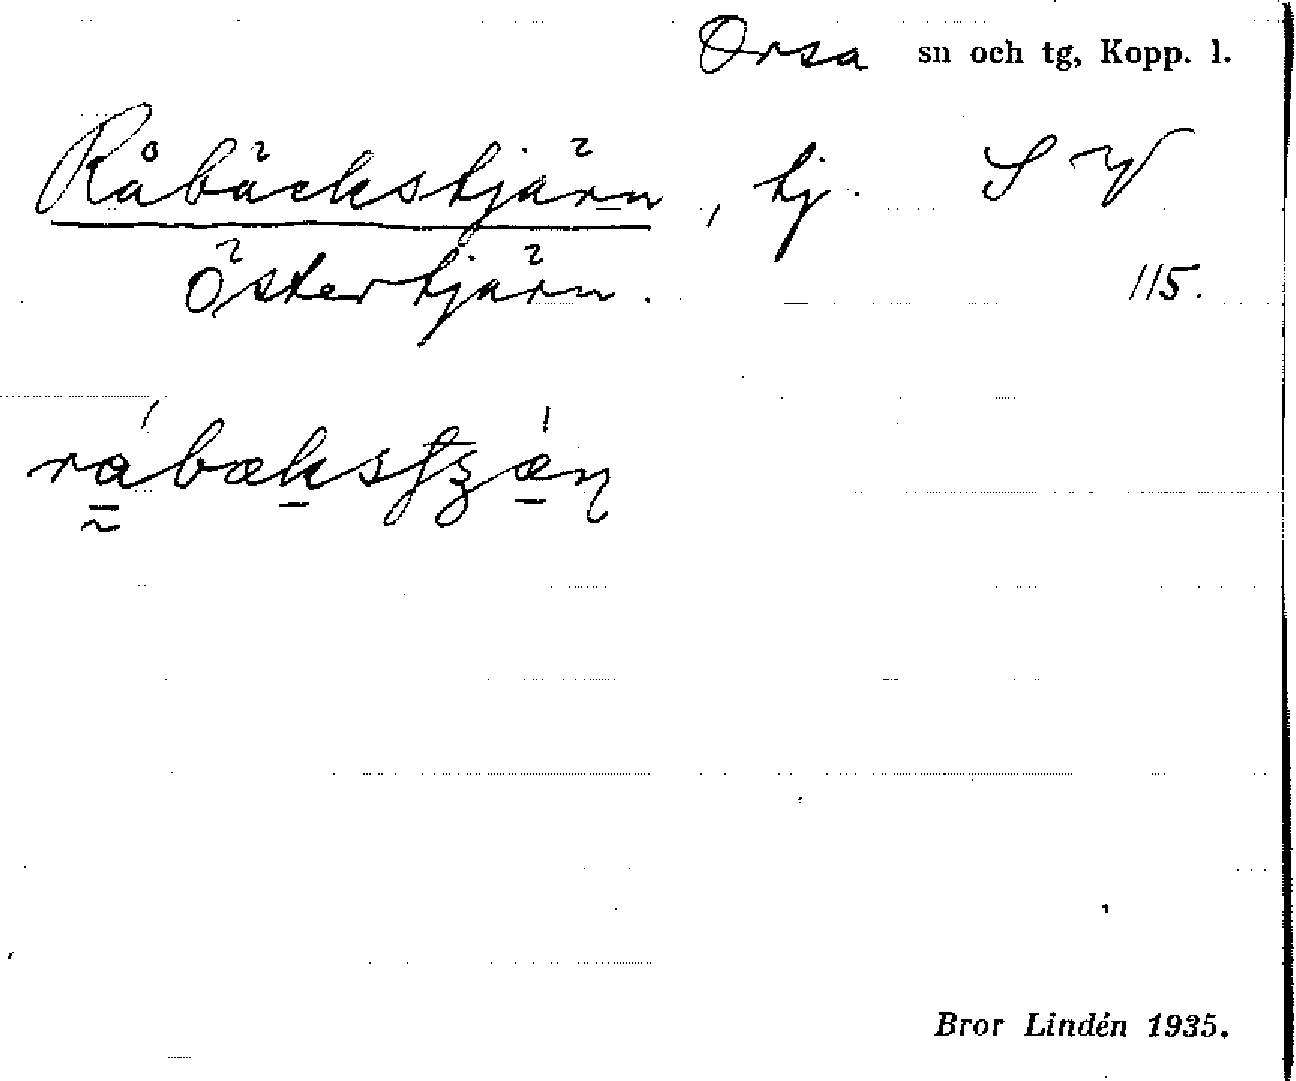 Orsa sn och tg, Kopp. l.
Råbäckstjärn, tj. S V
Östertjärn. 115.
Bror Lindén 1935.